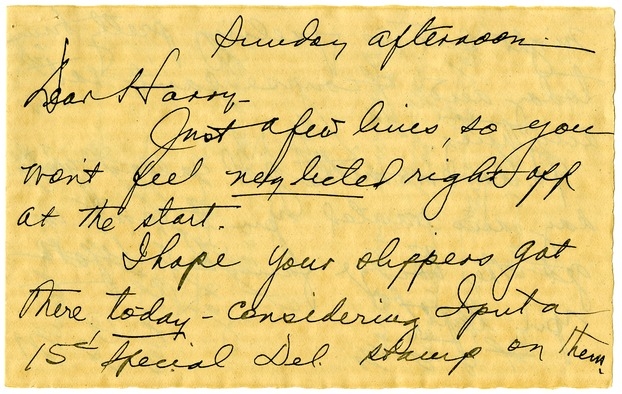 Sunday afternoon.
Dear Harry-
Just a few lines, so you
won't feel neglected right off
at the start.
I hope your slippers got
there, today - considering I put a
15¢ Special Del. stamp on them.